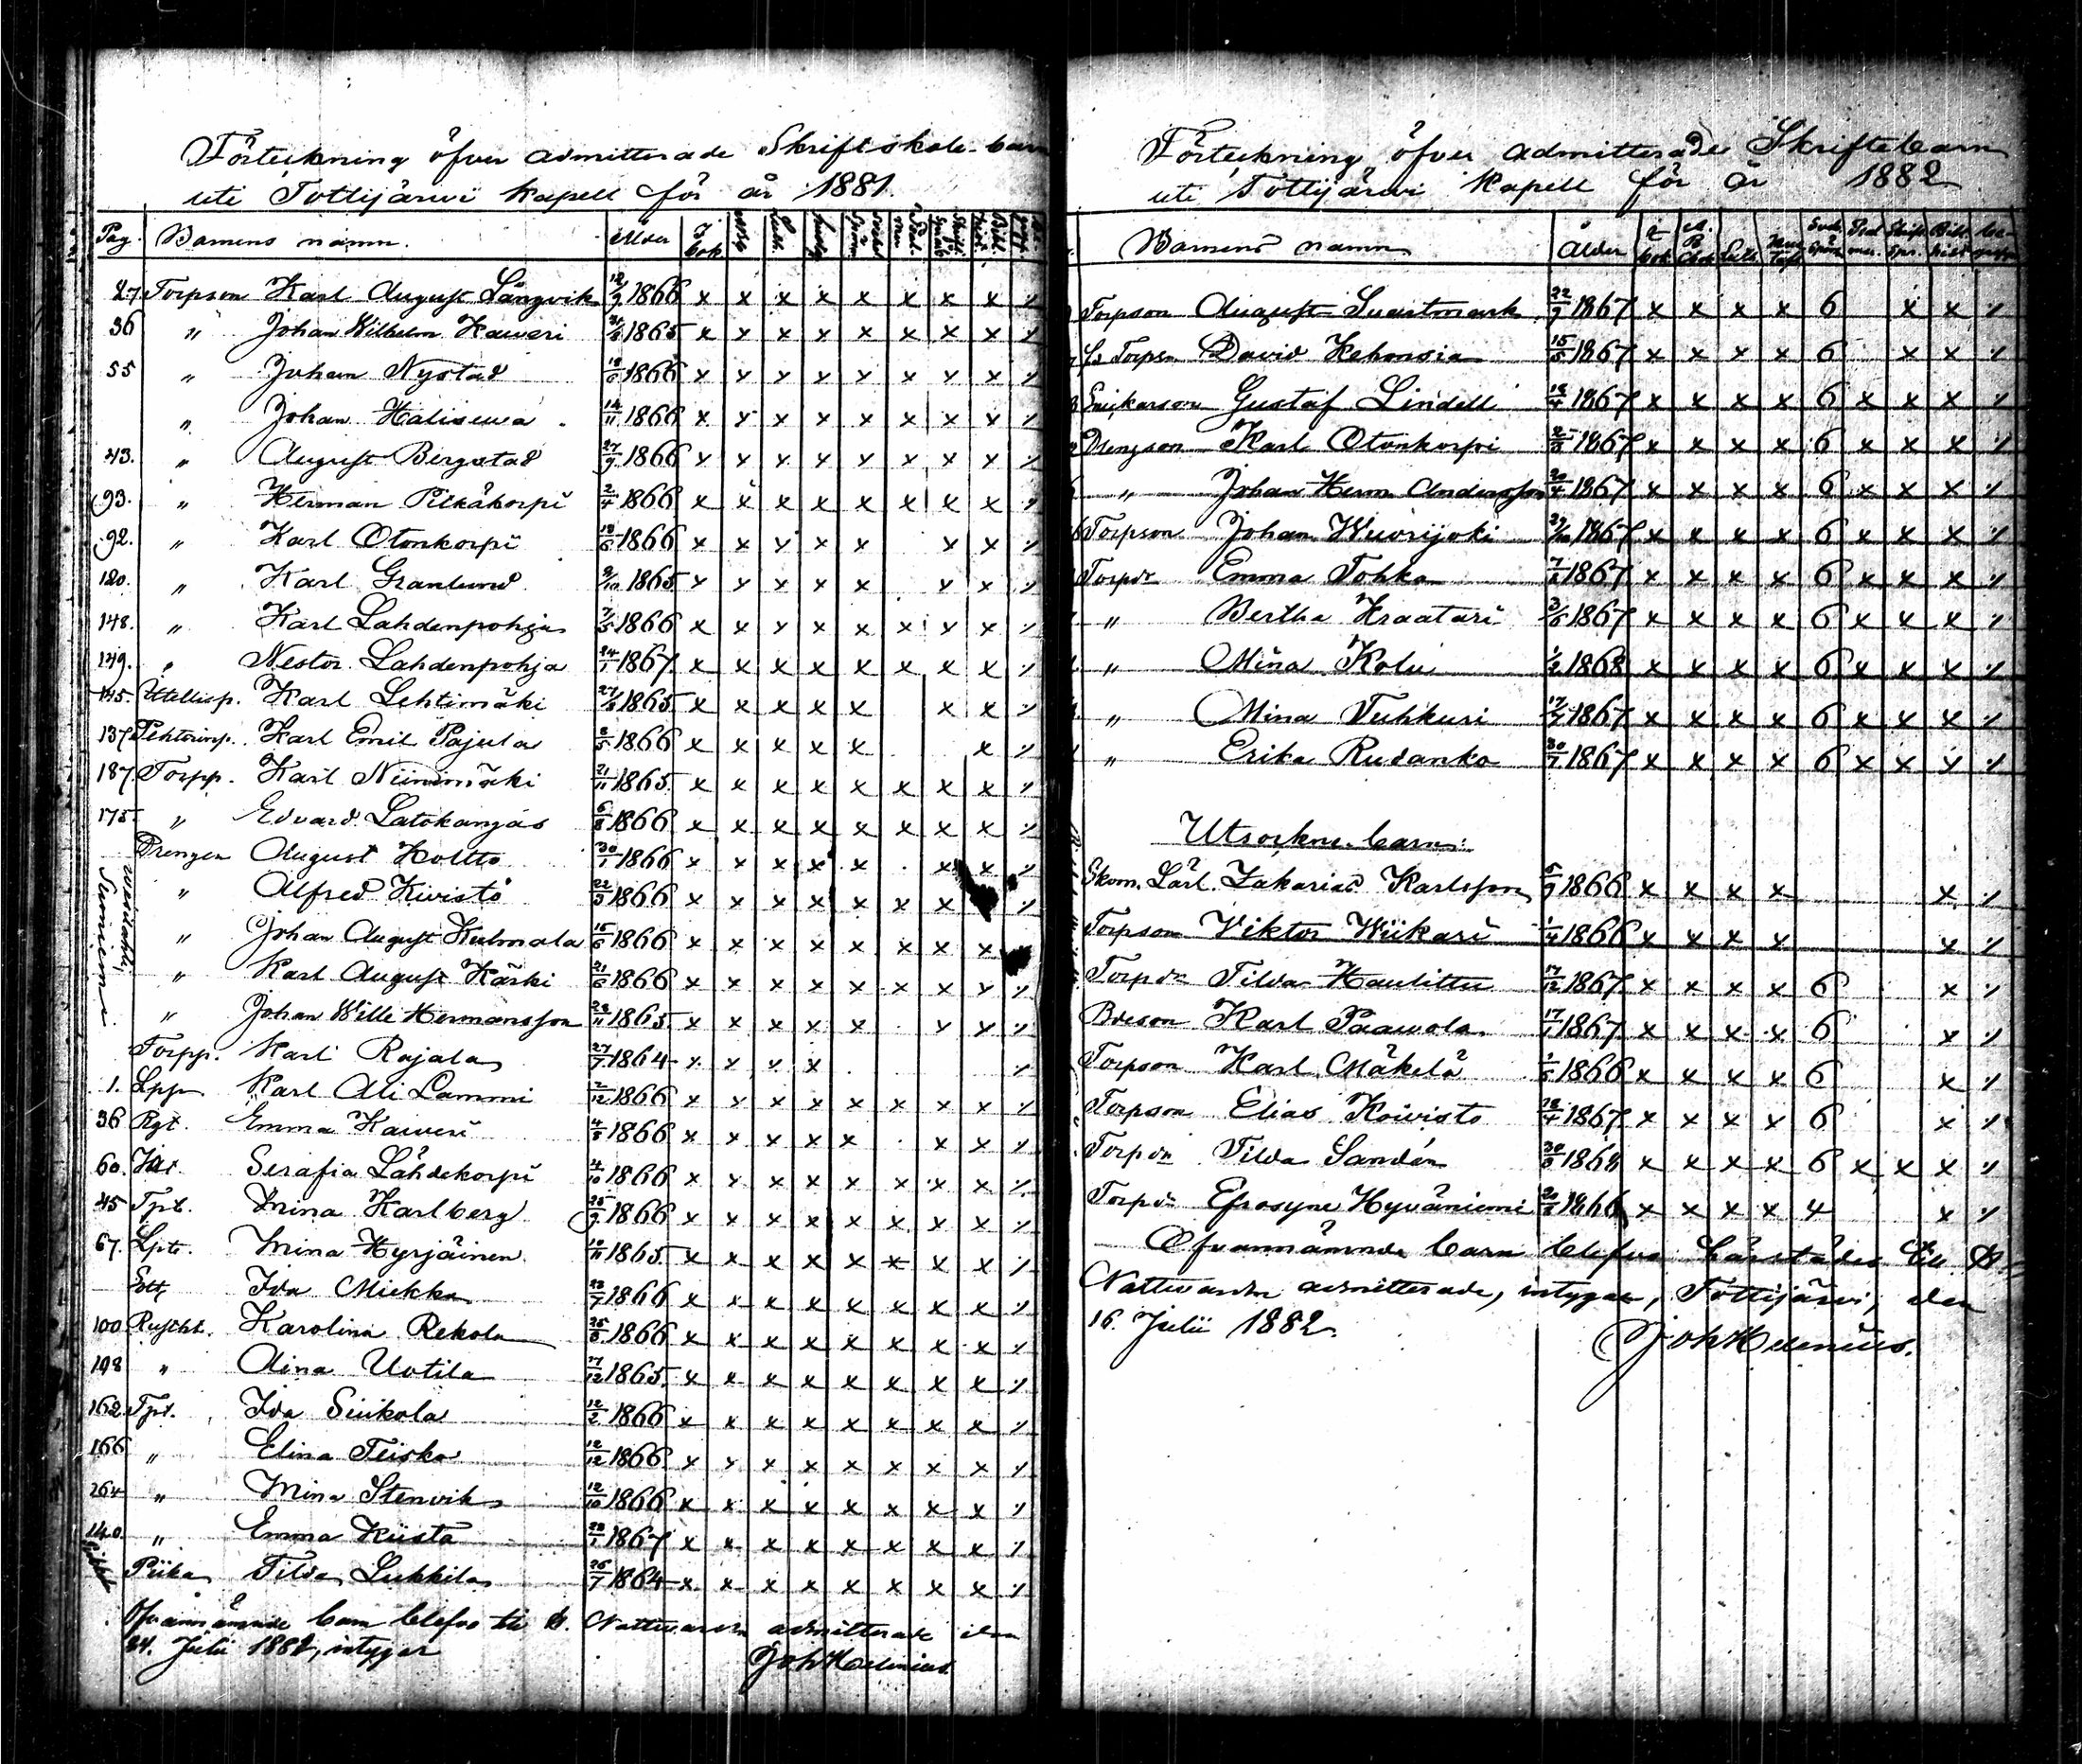 Förteckning öfver admitterade Skriftskole-barn
uti Tottijärwi Kapell för år 1881.
Pag. Barnens namn. Ålder
27 Torpson Karl August Långvik 12/9 1866 x x x x x x x x
36 " Johan Wilhelm Kaweri 1865 x x x x x x x x
55 " Johan Nystad 18/6 1866 x x x x x x x x
" Johan Haliseva 14/11 1866 x x x x x x x x
43. " August Bergstad 27/9 1866 x x x x x x x x
93. " Herman Pitkäkorpi 2/4 1866 x x x x x x x x
92. " Karl Otonkorpi 18/6 1866 x x x x x x x
120. " Karl Granlund 9/10 1865 x x x x x x x
148. " Karl Lahdenpohja 7/5 1866 x x x x x x x x
149. " Nestor Lahdenpohja 24/1 1867 x x x x x x x x
145. Karl Lehtimäki 1865 x x x x x x x
137 Karl Emil Pajula 8/5 1866 x x x x x x
187 Torpp. Karl Niinimäki 21/11 1865 x x x x x x x x
175 " Edvard Latokangas 6/8 1866 x x x x x x x x
Drengen August Koltto 30/1 1866 x x x x x x x
" Alfred Kivistö 22/5 1866 x x x x x x x
" Johan August Kulmala 15/6 1866 x x x x x x x x
" Karl August Käski 21/6 1866 x x x x x x x x
" Johan Wille Hermansson 28/11 1865 x x x x x x x
Suoniemi
Torpp. Karl Rajala 27/7 1864 x x x x
1. Lpp Karl Ali Lammi 2/12 1866 x x x x x x x x
36 Rgt. Emma Kaweri 4/5 1866 x x x x x x x
60. Serafia Lähdekorpi 4/10 1866 x x x x x x x x
45 Tpt. Mina Karlberg 25/9 1866 x x x x x x x x
67. Lptr. Mina Hyrjäinen 1865 x x x x x x x x
Ida Mickka 23/7 1866 x x x x x x x x
100 Rustht. Karolina Rekola 1866 x x x x x x x x
108 " Aina Uotila 17/12 1865 x x x x x x x x
162 Tpt. Ida Siukola 12/2 1866 x x x x x x x x
166 " Elina Teisko 12/12 1866 x x x x x x x x
264 " Mina Stenvik 12/10 1866 x x x x x x x x
140 " Emma Kiista 1867 x x x x x x x x
Piika Tilda Lukkila 26/7 1864 x x x x x x x x
Ofvannämnde barn blefvo till H. Nattvarden admitterade den
24. Julii 1882, intygar
Joh Helenius.
Förteckning öfver admitterade Skriftebarn
uti Tottijärwi Kapell för år 1882
Barnens namn Ålder
Torpson August Svartmark 22/9 1867 x x x x 6 x x
Torpson David Kehonsia 15/5 1867 x x x x 6 x x
Snickarson Gustaf Lindell 18/4 1867 x x x x 6 x x x
Drengson Karl Otonkorpi 1867 x x x x 6 x x x
" Johan Herm. Andersson 20/4 1867 x x x x 6 x x x
Torpson Johan Wuorijoki 1867 x x x x 6 x x x
Torpdr Emma Tohka 1867 x x x x 6 x x x
" Bertha Kraatari 1867 x x x x 6 x x x
" Mina Kolu 1/2 1868 x x x x 6 x x x
" Mina Tuhkuri 1867 x x x x 6 x x x
" Erika Rudanko 30/7 1867 x x x x 6 x x x
Utsockne barn:
Skom. Lärl. Zakarias Karlsson 5/9 1866 x x x x x
Torpson Viktor Wiikari 1/4 1866 x x x x x
Torpdr Tilda Haulittu 17/12 1867 x x x x 6 x
Karl Paawola 17/1 1867 x x x x 6 x
Torpson Karl Mäkelä 1866 x x x x 6 x
Torpson Elias Koivisto 18/4 1867 x x x x 6 x
Torpdr Tilda Sandén 186 x x x x 6 x x x
Torpdr Efrosyne Hyväniemi 1866 x x x x 4 x
Ofvannämnde barn blefvo härstädes till H.
Nattvarden admitterade, intygar, Tottijärvi, den
16. Julii 1882.
Joh Helenius.